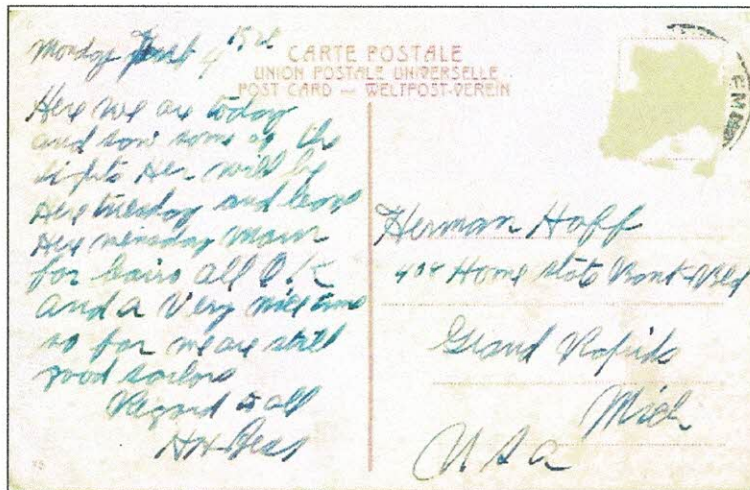 Monday
CARTE POSTALE
UNION POSTALE UNIVERSELLE
POST CARD — WELTPOST-VEREIN
Here we are today
and saw some of the
Her. will be
Her tuesday and leave
Her
for Cairo all O.K
and a Very nice time
so far we are still
good sailors
Regard to all
H H
Herman Hoff
404 Home State Bank Bld
Grand Rapids
Mich
U S A